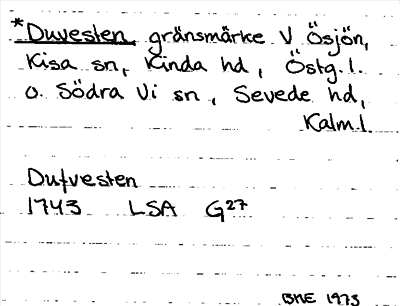 *Duvesten, gränsmärke V Ösjön,
Kisa sn, Kinda hd, Östg.l.
o. Södra Vi sn, Sevede hd,
Kalm.l.
Dufvesten
1743 LSA G27
BHE 1973